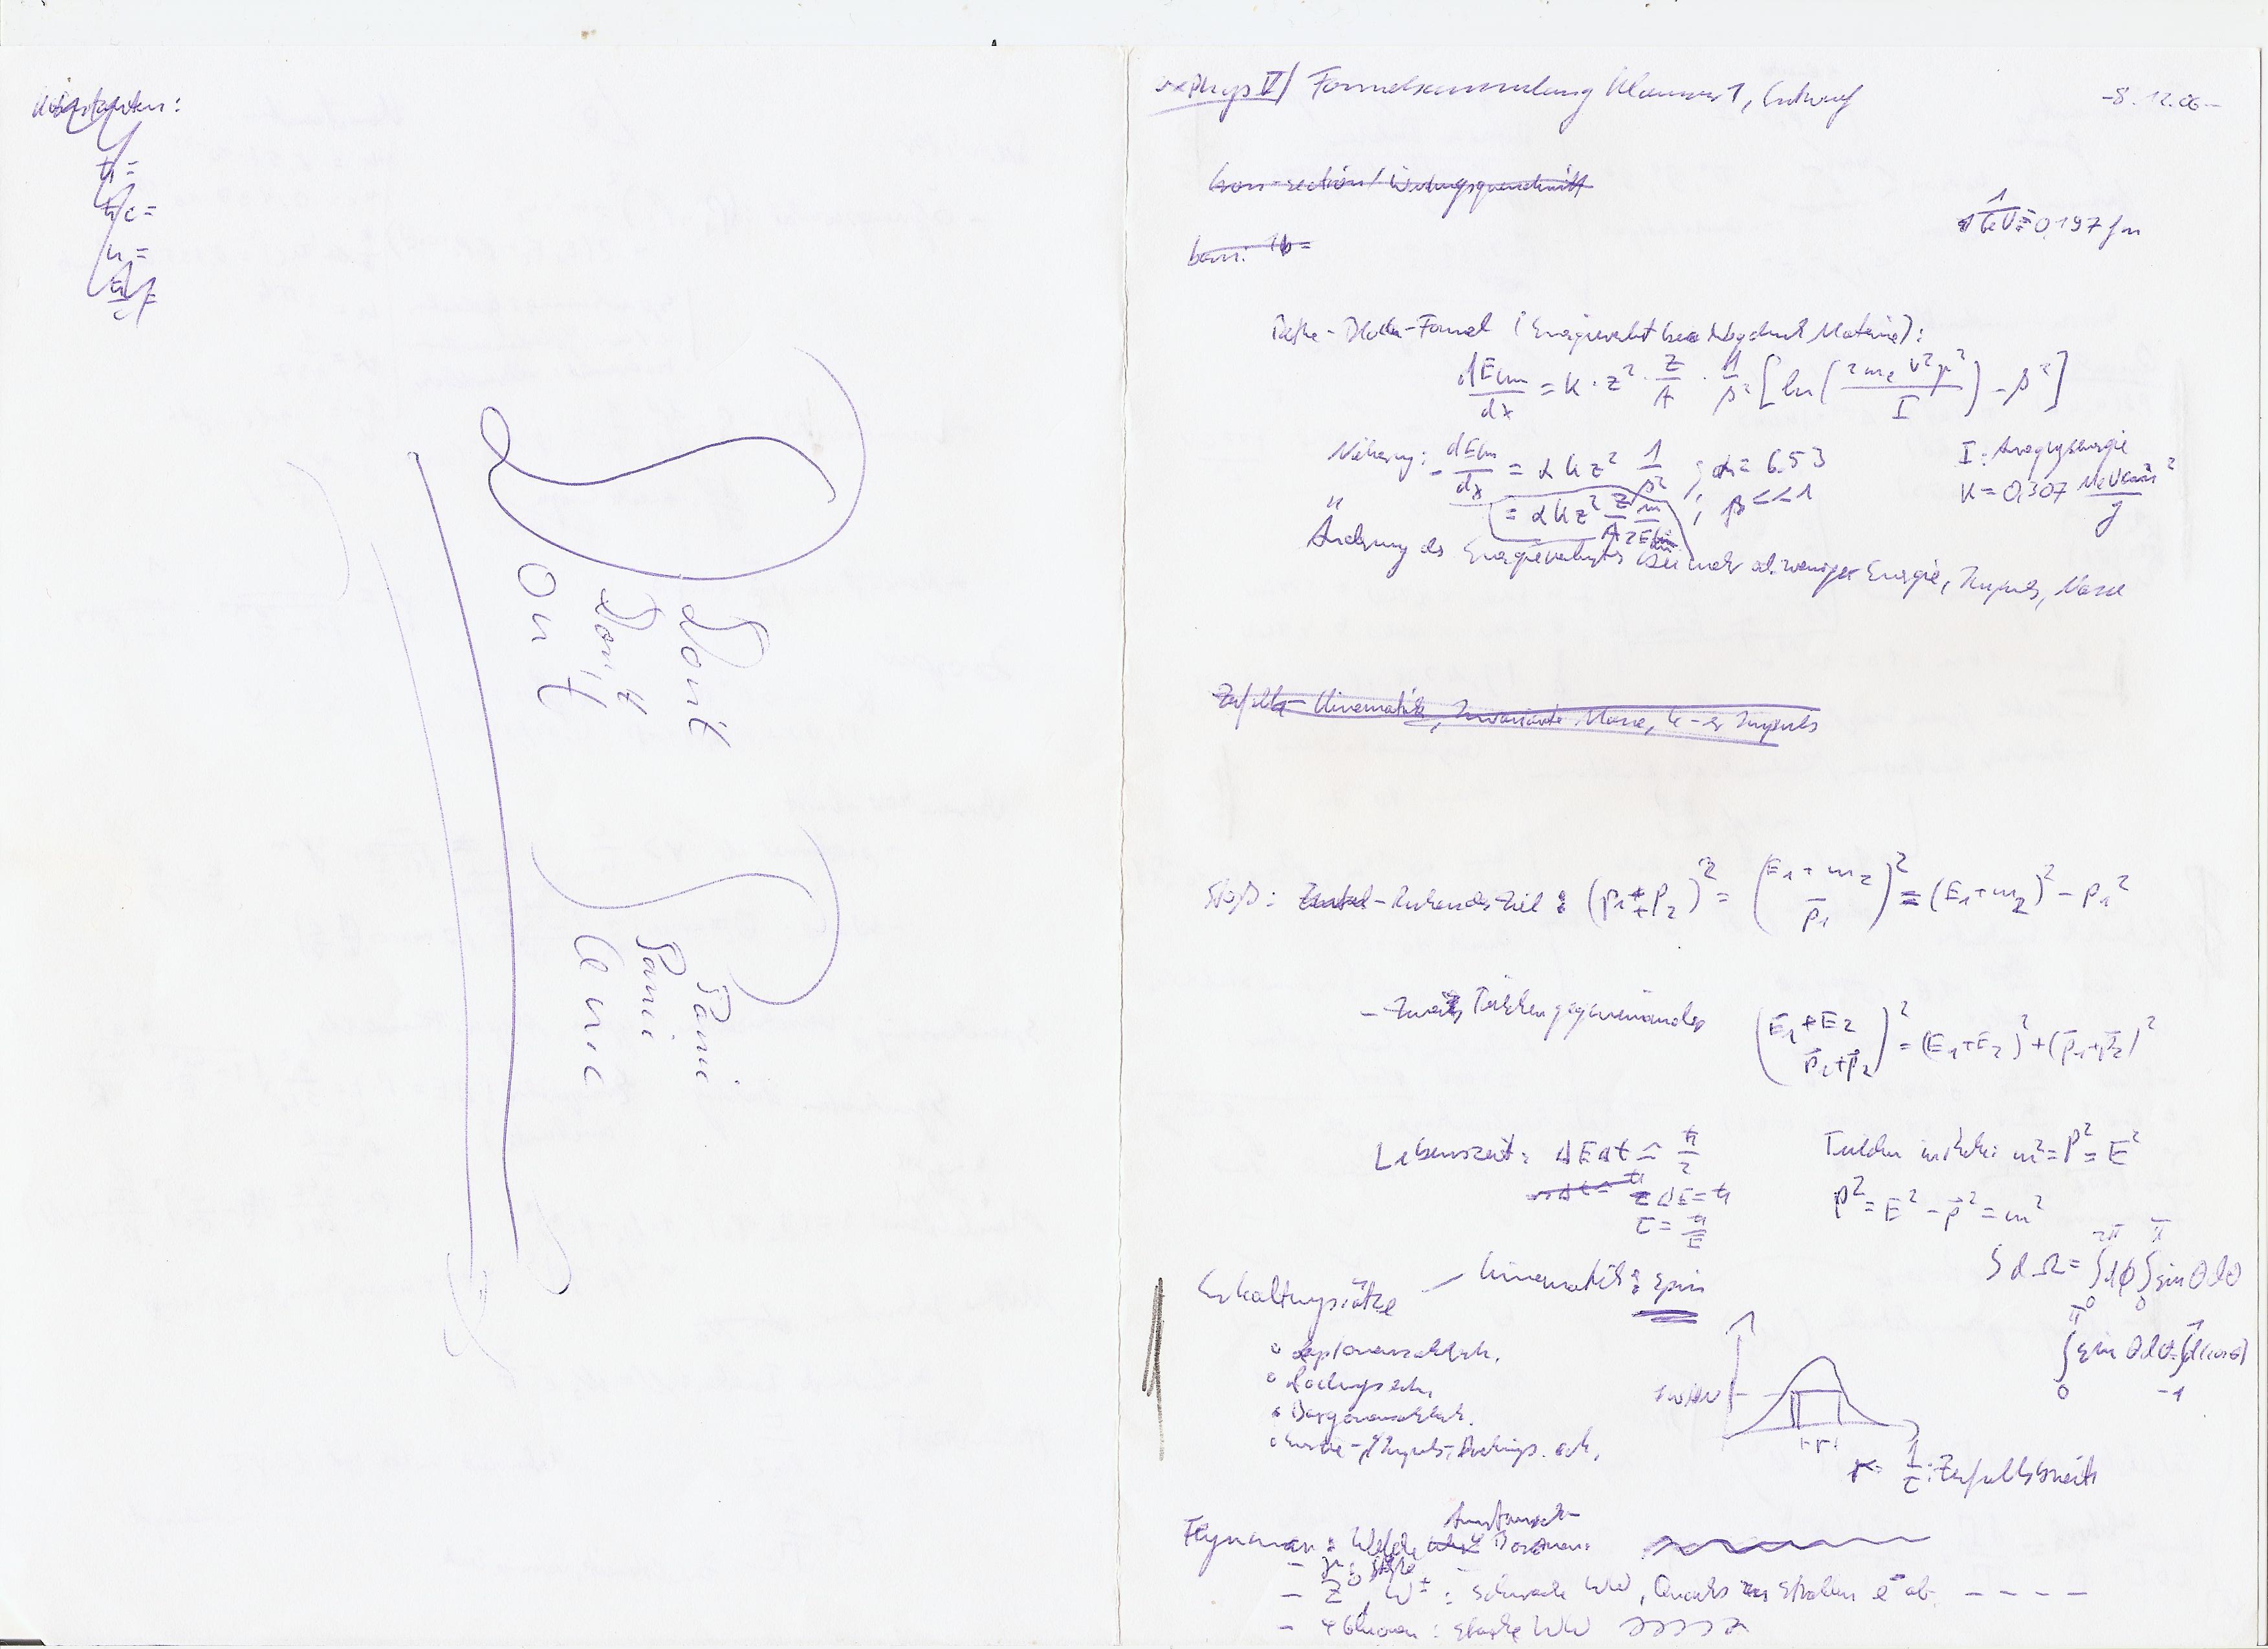 Konstanten:
ħ =
ħc =
u =
Dont
Don't
Ont
Panic
Panic
anic
exPhys V / Formelsammlung Klausur 1, Entwurf
-8.12.06-
Cross-section / Wirkungsquerschnitt
barn: 1b =
1/GeV = 0,197 fm
Bethe-Bloch-Formel (Energieverlust beim Materie):
dEion/dx = K · z² · Z/A · 1/β² [ln(2me v²γ²/I) - β²]
Näherung: - dEion/dx = αKz² 1/β² ; α = 6.53
= αKz² Z/A m/2Ekin ; β << 1
I: Anregungsenergie
K = 0,307 MeV cm²/g
Änderung des Energieverlustes bei mehr od. weniger Energie, Impuls, Masse
Zerfalls-Kinematik, Invariante Masse, 4-er Impuls
Stoß: - Ruhendes Ziel: (p1 + p2)² = (E1 + m2 / p1)² = (E1 + m2)² - p1²
- Zwei Teilchen gegeneinander (E1 + E2 / p1 + p2)² = (E1 + E2)² + (p1 + p2)²
Lebenszeit: ΔEΔt ≥ ħ/2
τΔE = ħ
τ = ħ/E
Teilchen in Ruhe: m² = P² = E²
P² = E² - p² = m²
∫dΩ = ∫dφ ∫sinθ dθ
∫sinθ dθ = ∫d(cosθ)
Erhaltungssätze - Kinematik: Spin
° Leptonenzahlerh.
° Ladungserh.
° Baryonenzahlerh.
° Impuls-, Drehimps. erh.
Γ = 1/τ : Zerfallsbreite
Feynman: Welche Austausch-Bosonen:
- γ:
- Z⁰, W± : schwache WW, Quarks strahlen e⁻ ab. - - - -
- Gluonen: starke WW